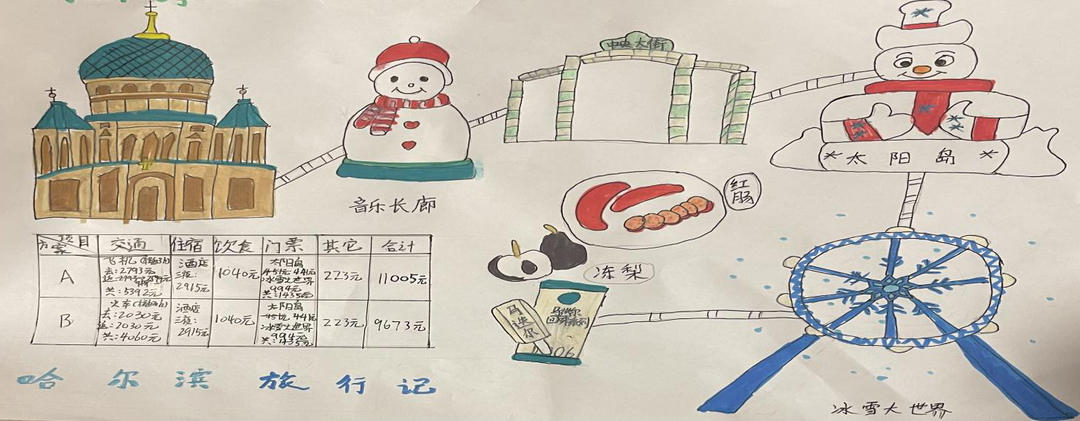 中央大街
太阳岛
音乐长廊
红肠
冻梨
马迭尔
06
方案 项目 交通 住宿 饮食 门票 其它 合计
A 飞机
去:2793元
共:5392元
酒店
三夜:
2915元
1040元
太阳岛
冰雪大世界
994元
共:1435元
223元 11005元
B 火车
去:2030元
返:2030元
共:4060元
酒店
三夜:
2915元
1040元
太阳岛
冰雪大世界
994元
共:1435元
223元 9673元
哈尔滨旅行记
冰雪大世界